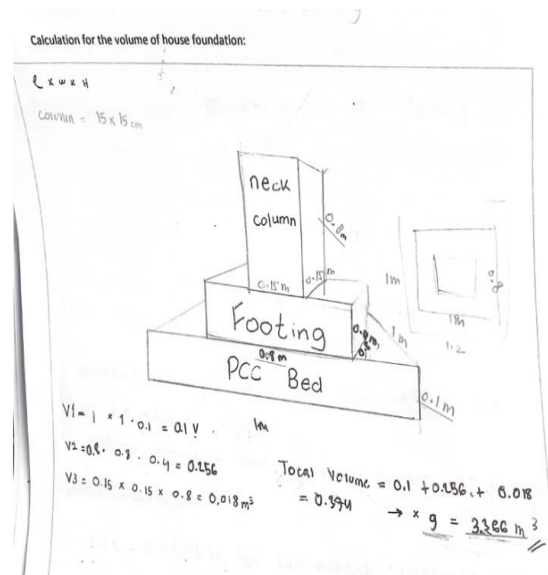 Calculation for the volume of house foundation:
l x w x H
Column = 15 x 15 cm
neck
column
0.8m
0.15m
0.15m
Footing
0.8m
PCC Bed
1m
0.1m
1m
1m
1m
0.8
1.2
V1 = 1 * 1 . 0.1 = 0.1 V .
V2 = 0.8 . 0.8 . 0.4 = 0.256
V3 = 0.15 x 0.15 x 0.8 = 0,018 m³
Total Volume = 0.1 + 0.256. + 0.018
= 0.374
→ x 9 = 3.366 m³